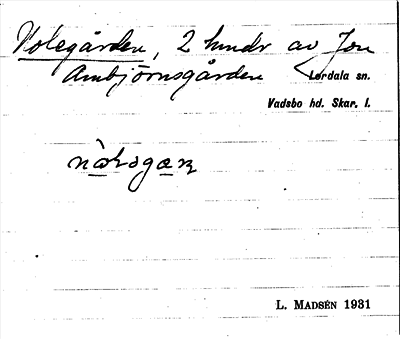 Nolegården, 2 hundr av Jon
Ambjörnsgården Lerdala sn.
Vadsbo hd. Skar. l.
L. MADSÉN 1931